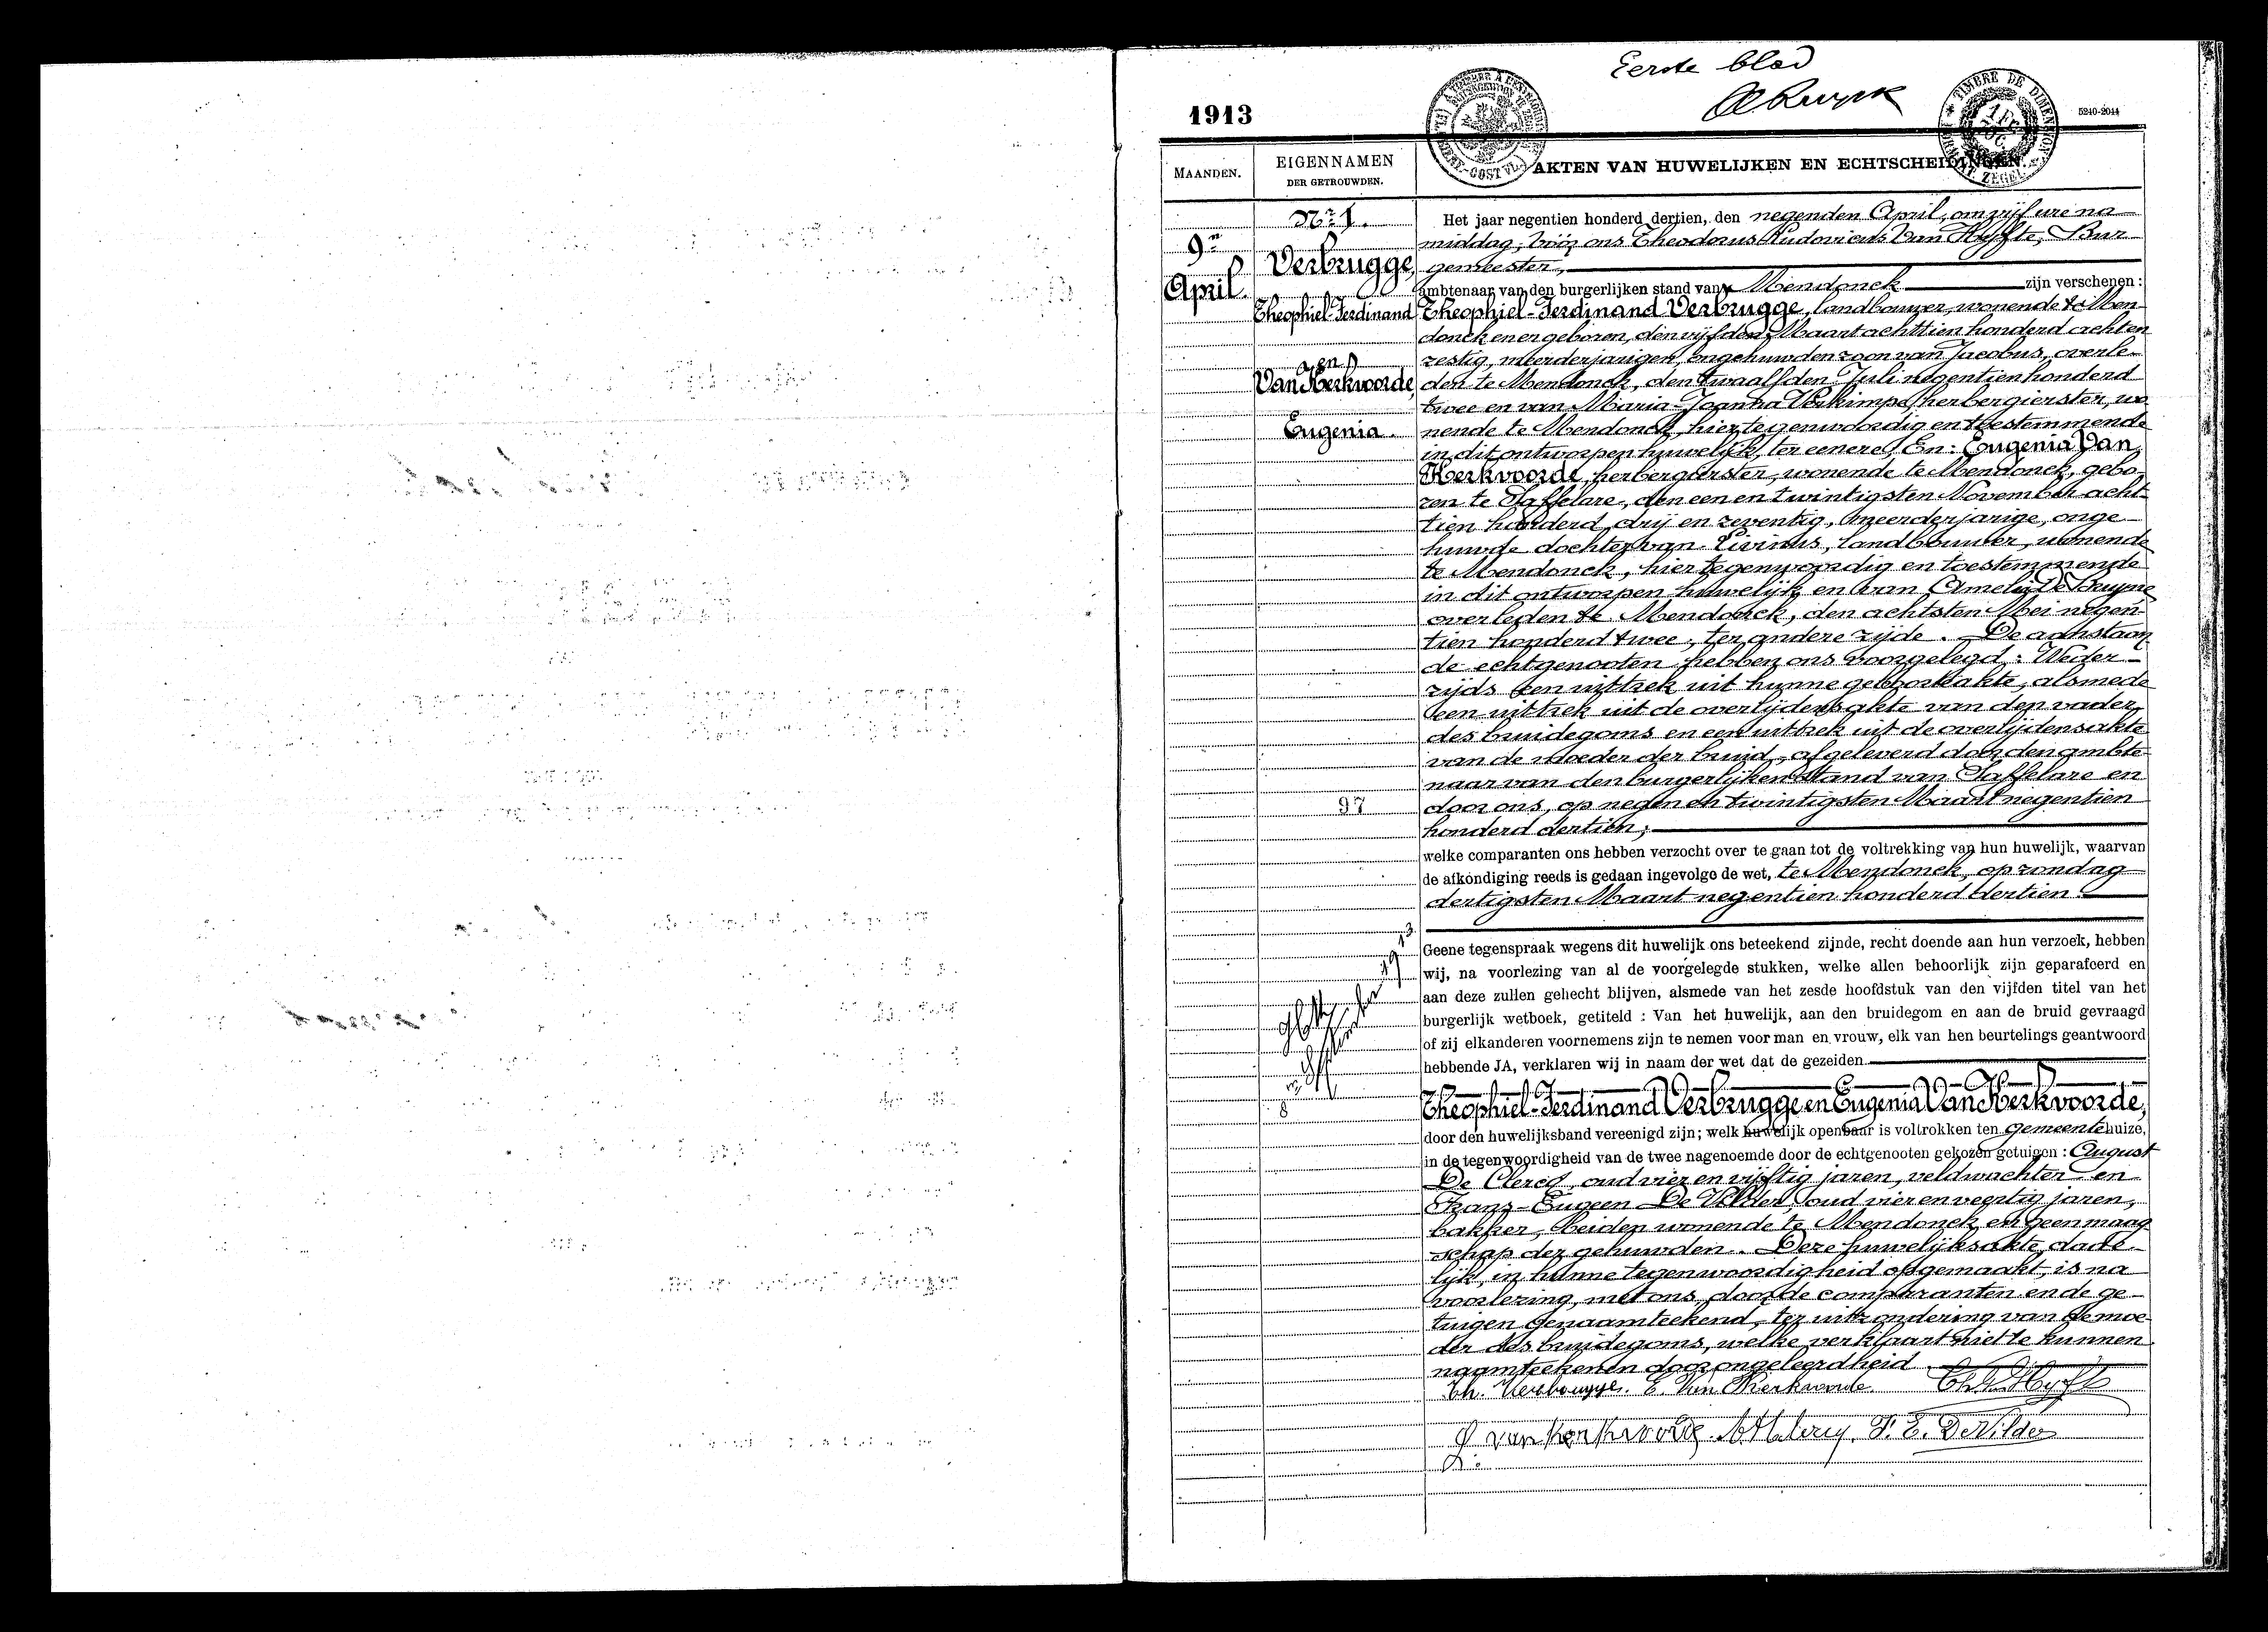 Eerste blad
1913
5240-2044
MAANDEN.
EIGENNAMEN
DER GETROUWDEN.
AKTEN VAN HUWELIJKEN EN ECHTSCHEIDINGEN.
TIMBRE DE DIMENSION
9n
April.
Nr 1.
Verbrugge,
Theophiel-Ferdinand
en
Van Herkvoorde,
Eugenia.
97
Het jaar negentien honderd dertien, den negenden April, om vijf ure na
middag, vóór ons Theodorus Ludovicus Van Hyfte, Bur
gemeester,
ambtenaar van den burgerlijken stand van Mendonck zijn verschenen:
Theophiel-Ferdinand Verbrugge, landbouwer, wonende te Men
donck en er geboren, den vijfden Maart achttien honderd achten
zestig, meerderjarigen, ongehuwden zoon van Jacobus, overle
den te Mendonck, den twaalfden Juli negentien honderd
twee en van Maria-Joanna Verkimpe, herbergierster, wo
nende te Mendonck, hier tegenwoordig en toestemmende
in dit ontworpen huwelijk, ter eenere; En: Eugenia Van
Herkvoorde, herbergierster, wonende te Mendonck, gebo
ren te Saffelare, den een en twintigsten November acht
tien honderd drij en zeventig, meerderjarige, onge
huwde dochter van Livinus, landbouwer, wonende
te Mendonck, hier tegenwoordig en toestemmende
in dit ontworpen huwelijk en van Amelie De Bruyne
overleden te Mendonck, den achtsten Mei negen
tien honderd twee, ter andere zijde. De aanstaan
de echtgenooten hebben ons voorgelegd: Weder
zijds een uittrek uit hunne geboorteakte, alsmede
een uittrek uit de overlijdensakte van den vader
des bruidegoms en een uittrek uit de overlijdensakte
van de moeder der bruid, afgeleverd door den ambte
naar van den burgerlijken stand van Saffelare en
door ons, op negen en twintigsten Maart negentien
honderd dertien;
welke comparanten ons hebben verzocht over te gaan tot de voltrekking van hun huwelijk, waarvan
de afkondiging reeds is gedaan ingevolge de wet, te Mendonck, op zondag
dertigsten Maart negentien honderd dertien.
Geene tegenspraak wegens dit huwelijk ons beteekend zijnde, recht doende aan hun verzoek, hebben
wij, na voorlezing van al de voorgelegde stukken, welke allen behoorlijk zijn geparafeerd en
aan deze zullen gehecht blijven, alsmede van het zesde hoofdstuk van den vijfden titel van het
burgerlijk wetboek, getiteld : Van het huwelijk, aan den bruidegom en aan de bruid gevraagd
of zij elkanderen voornemens zijn te nemen voor man en vrouw, elk van hen beurtelings geantwoord
hebbende JA, verklaren wij in naam der wet dat de gezeiden
Theophiel-Ferdinand Verbrugge en Eugenia Van Herkvoorde,
door den huwelijksband vereenigd zijn; welk huwelijk openbaar is voltrokken ten gemeentehuize,
in de tegenwoordigheid van de twee nagenoemde door de echtgenooten gekozen getuigen: August
De Clercq, oud vier en vijftig jaren, veldwachter en
Frans-Eugeen De Wilder, oud vier en veertig jaren,
bakker, beiden wonende te Mendonck en geen maag
schap der gehuwden. Deze huwelijksakte, dade
lijk, in hunne tegenwoordigheid opgemaakt, is na
voorlezing, met ons, door de comparanten en de ge
tuigen genaamteekend, ter uitzondering van de moe
der des bruidegoms, welke verklaart niet te kunnen
naamteekenen door ongeleerdheid.
Th. Verbrugge. E. Van Herkvoorde
F. E. De Wilder